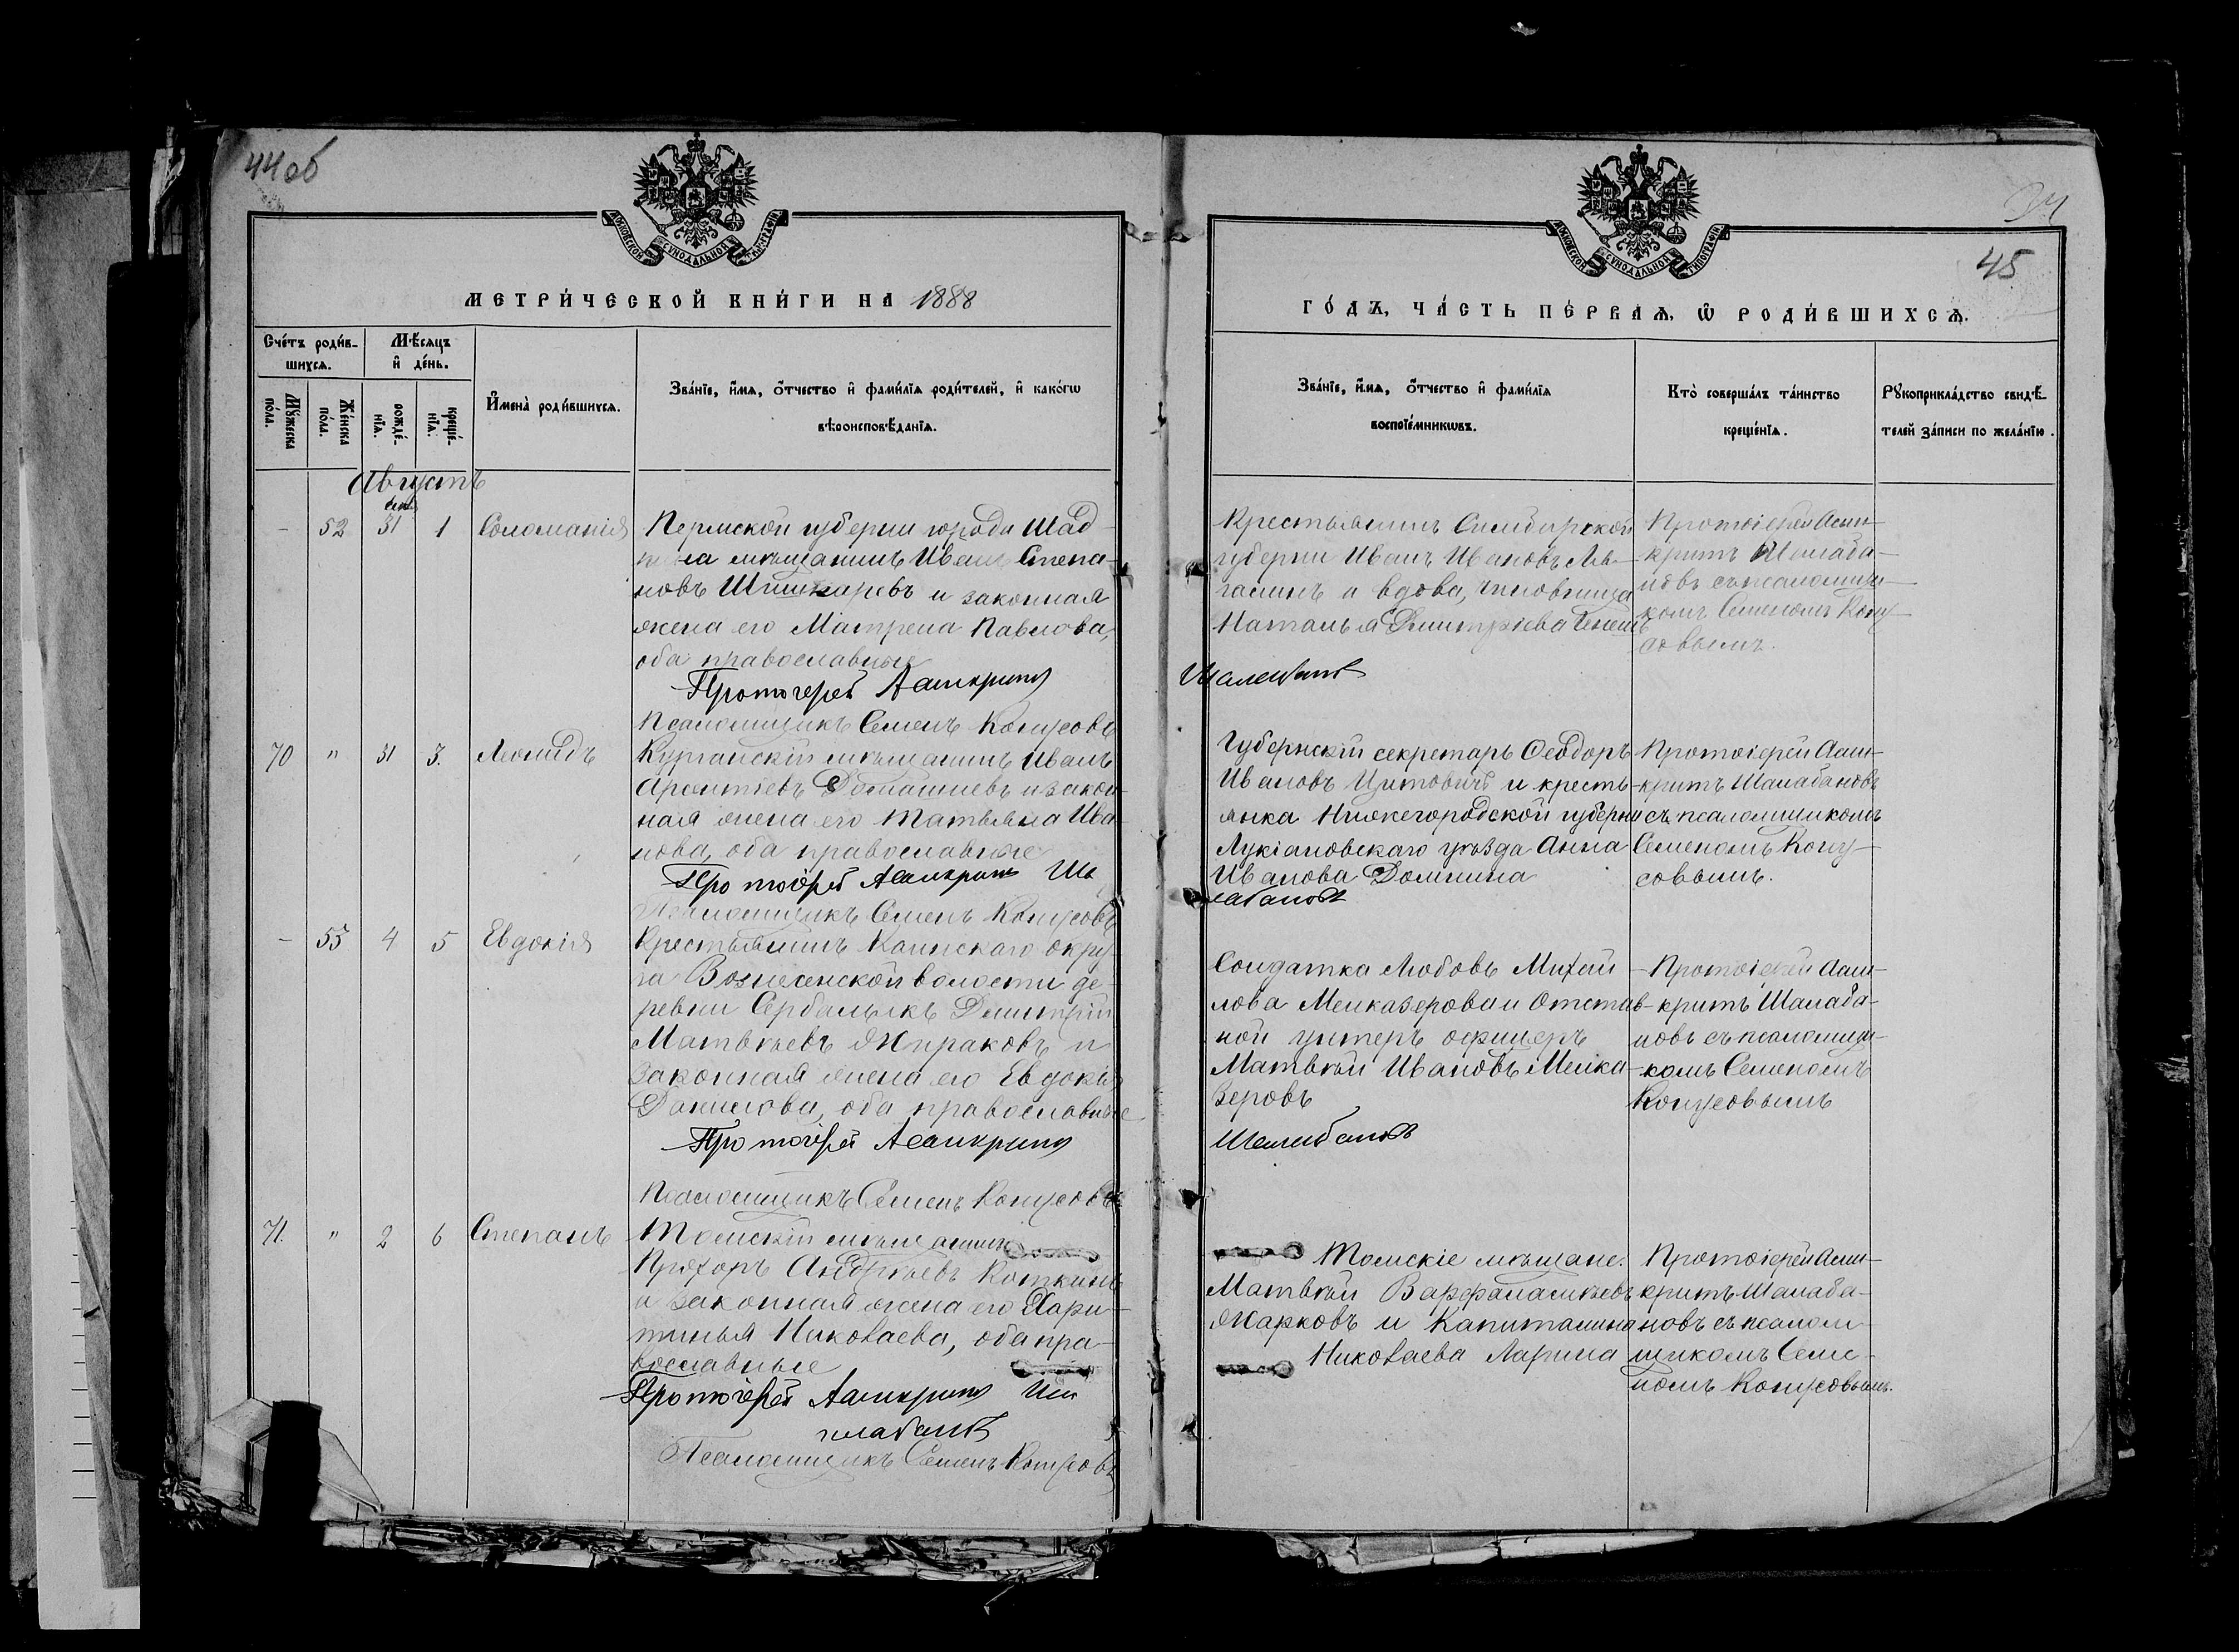 44 об
МЕТРИ́ЧЕСКОЙ КНИ́ГИ НА 1888
Сче́тъ роди́в-
шихся.
Мѣ́сяцъ
и҆ де́нь.
Мꙋ́жеска
по́ла.
Же́нска
по́ла.
рожде́-
нїя.
креще́-
нїя.
И҆мена̀ роди́вшихся.
Зва́нїе, и҆́мя, ѻ҆́тчество и҆ фами́лїя роди́телей, и҆ како́гѡ
вѣроисповѣ́данїя.
Августъ
Сен
- 52 31 1 Соломанія
Пермской губерніи города Шад-
на мѣщанинъ Иванъ Степа-
новъ Шишкаревъ и законная
жена его Матрена Павлова,
оба православные
Протоіерей Асинкритъ
Псаломщикъ Семенъ Конусовъ
70 " 31 3. Леонидъ
Курганскій мѣщанинъ Иванъ
Домашневъ и закон-
ная жена его Татьяна Ива-
нова, оба православные
Протоіерей Асинкритъ Ша
Псаломщикъ Семенъ Конусовъ
- 53 4 5 Евдокія
Крестьянинъ Каинскаго окру-
га Вознесенской волости де-
ревни Сербалыкъ Димитрій
Матвѣевъ Жираковъ и
законная жена его Евдокія
Данилова, оба православные
Протоіерей Асинкритъ
Псаломщикъ Семенъ Конусовъ
71. " 2 6 Степанъ
Томскій мѣщанинъ
Прохоръ Андреевъ Коткинъ
и законная жена его Хари-
тинья Николаева, оба пра-
вославные
Протоіерей Асинкритъ Ша
лабановъ
Псаломщикъ Семенъ Конусовъ
45
ГО́ДЪ, ЧА́СТЬ ПЕ́РВАЯ, Ѡ҆ РОДИ́ВШИХСЯ.
Зва́нїе, и҆́мя, ѻ҆́тчество и҆ фами́лїя
воспрїе́мникѡвъ.
Кто̀ соверша́лъ та́инство
креще́нїя.
Рꙋкоприкла́дство свидѣ́-
телей за́писи по жела́нїю.
Крестьянинъ Симбирской
губерніи Иванъ Ивановъ
и вдова, чиновница
Наталья Димитріева
Шалабановъ
Протоіерей Асин-
критъ Шалаба-
новъ съ псаломщи-
комъ Семеномъ Кону-
совымъ.
Губернскій секретарь Ѳеодоръ
Ивановъ Цитовичъ и кресть-
янка Нижегородской губерніи
Лукіановскаго уѣзда Анна
Иванова Домнина
лабановъ
Протоіерей Асин-
критъ Шалабановъ
съ псаломщикомъ
Семеномъ Кону-
совымъ.
Солдатка Любовь Михай-
лова Мелказерова и отстав-
ной унтеръ офицеръ
Матвѣй Ивановъ Мелка-
зеровъ
Шалабановъ
Протоіерей Асин-
критъ Шалаба-
новъ съ псаломщи-
комъ Семеномъ
Конусовымъ
Томскіе мѣщане:
Матвѣй Варфаламѣевъ
Жарковъ и Капиталина
Николаева Ларина
Протоіерей Асин-
критъ Шалаба-
новъ съ псалом-
щикомъ Семе-
номъ Конусовымъ.